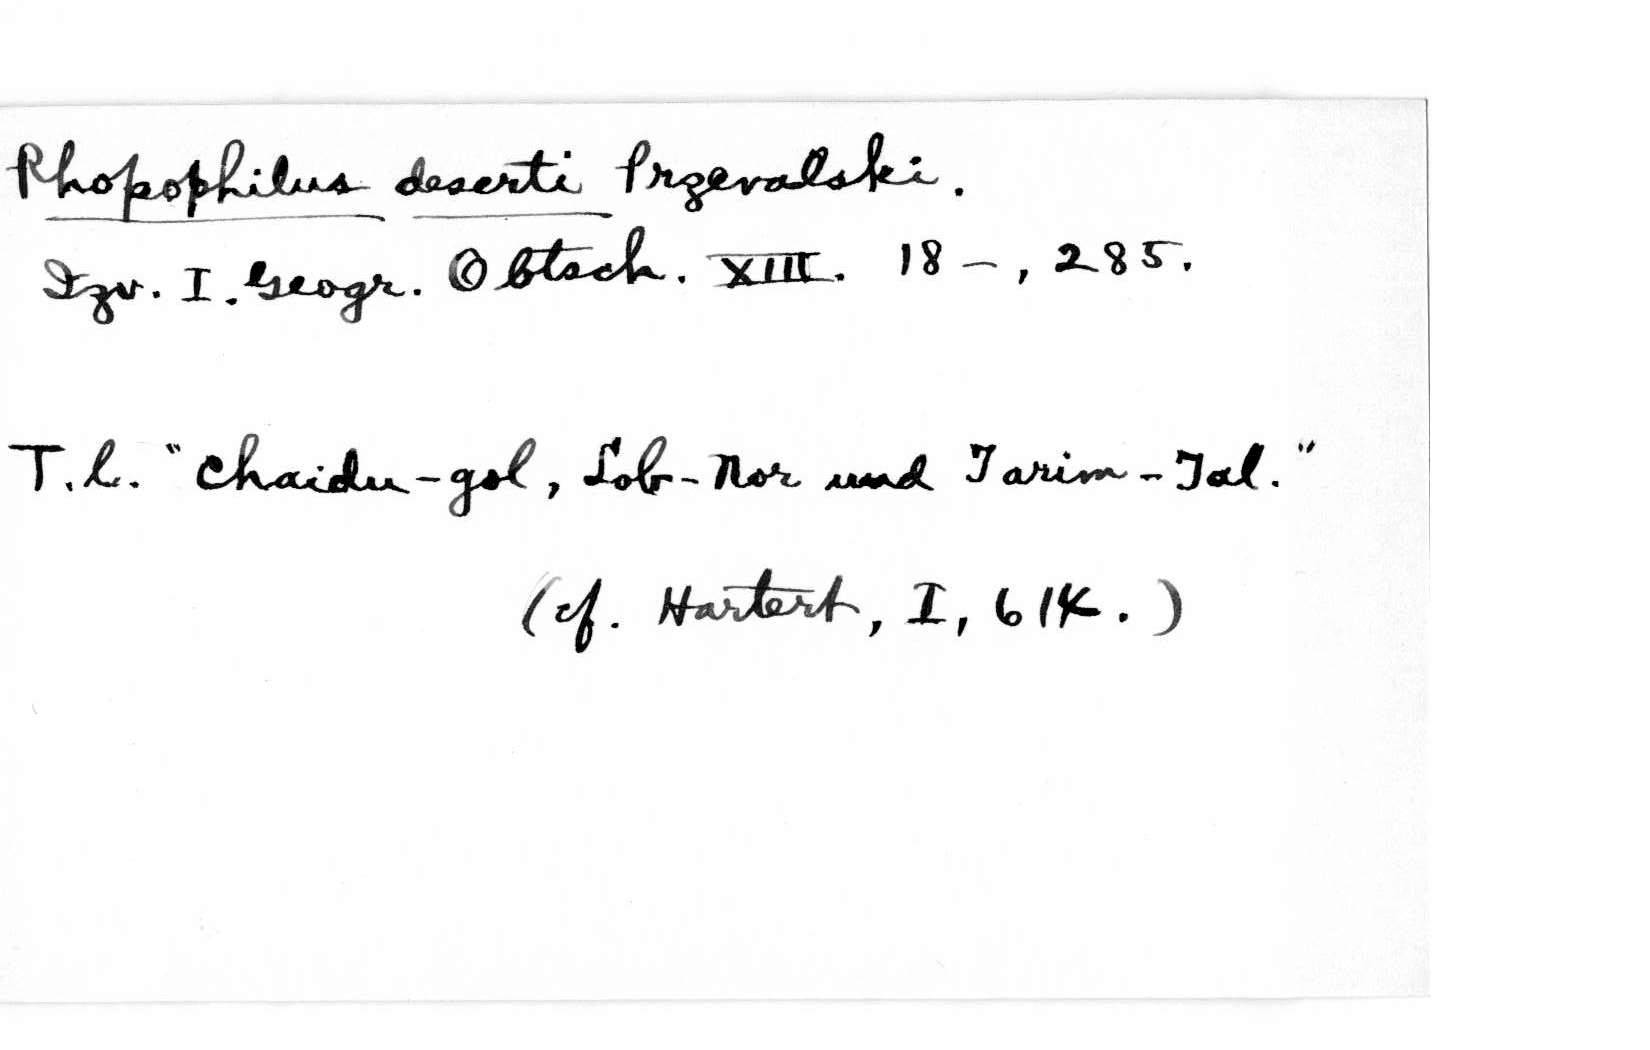 Rhopophilus deserti Przevalski.
Izv. I. Geogr. Obtsch. XIII. 18–, 285.
T.l. "Chaidu-gol, Lob-Nor und Tarim-Tal."
(cf. Hartert, I, 614.)